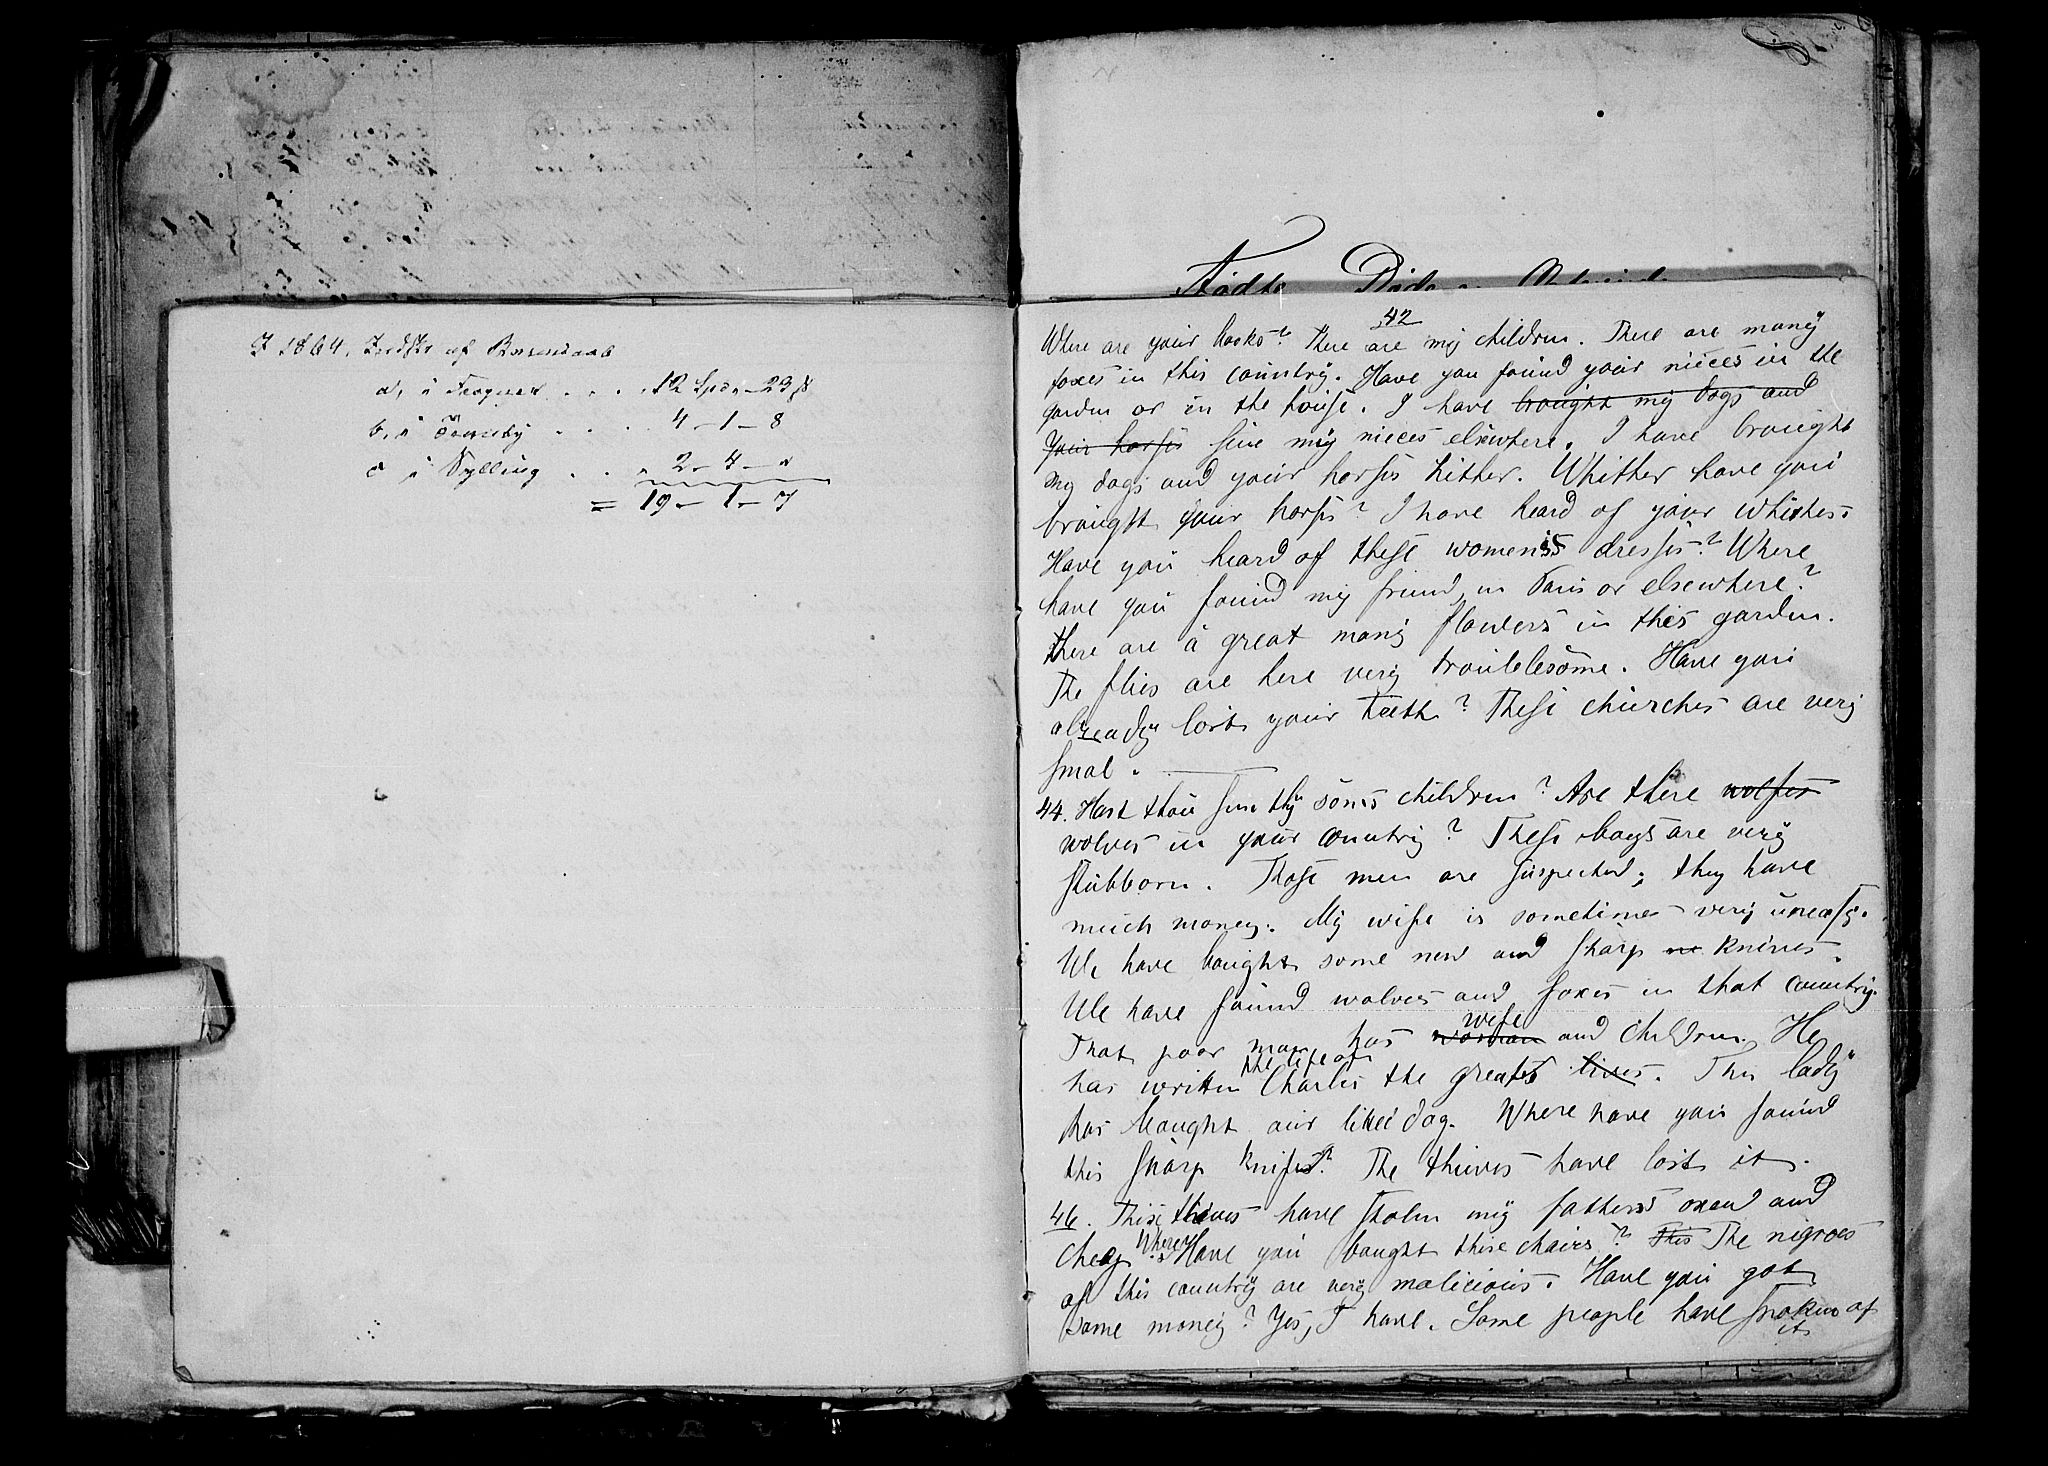 I 1864. Indktr af
a, i Frogner . . . 12 Spd – 23 ß
b, i Tranby . . . 4 – 1 – 8
c i Sylling . . . 2 – 4 – "
= 19 – 1 – 7
Fødte Døde
42
Where are your books? There are my children. There are many
foxes in this country. Have you found your nieces in the
garden or in the house. I have brought my dogs and
your horses seen my nieces elsewhere. I have brought
my dogs and your horses hither. Whither have you
brought your horses? I have heard of your
Have you heard of these women's dresses? Where
have you found my friend, in Paris or elsewhere?
there are a great many flowers in this garden.
The flies are here very troublesome. Have you
already lost your teeth? These churches are very
smal.
44. Hast thou seen thy son's children? Are there wolfes
wolves in your country? These boys are very
stubborn. Those men are suspected; they have
much money. My wife is sometimes very uneasy.
We have bought some new and sharp ne knives.
We have found wolves and foxes in that country.
That poor man has woman wife and children. He
has written the life of Charles the great lives. This lady
has bought our little dog. Where have you found
this sharp knife? The thieves have lost it.
46. These thieves have stolen my fathers oxen and
Where Have you bought these chairs? This The nigroes
of this country are very malicious. Have you got
some money? Yes, I have. Some people have spoken of
it